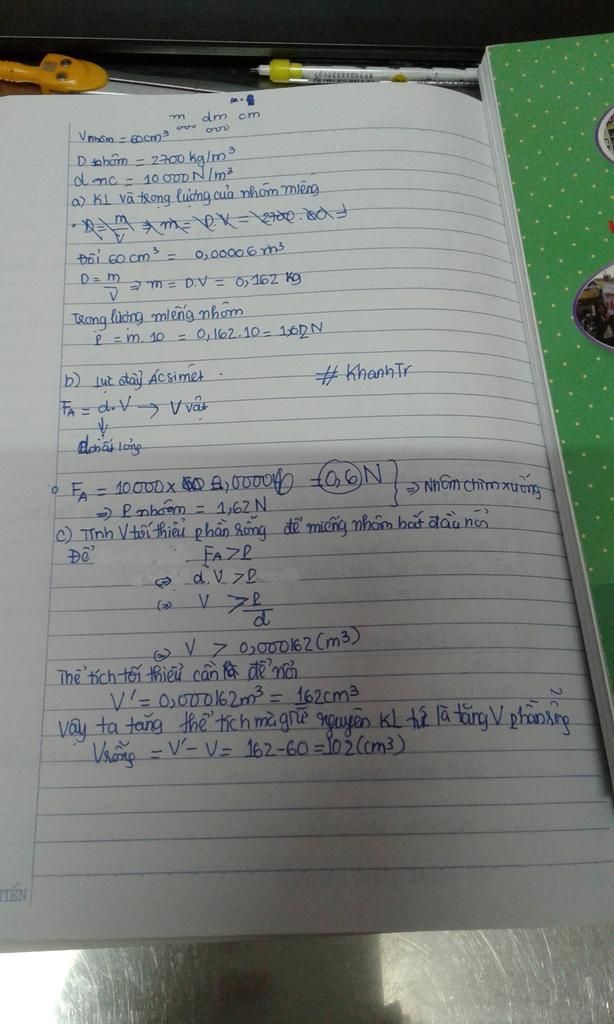 m dm cm
000 000
Vnhôm = 60cm³
D nhôm = 2700 kg/m³
d nc = 10 000 N/m³
a) KL và trọng lượng của nhôm miếng
Đổi 60 cm³ = 0,00006 m³
D = m/V => m = D.V = 0,162 kg
Trọng lượng miếng nhôm
P = m.10 = 0,162.10 = 1,62 N
b) lực đẩy Ácsimét .
# KhanhTr
FA = d.V → V vật
↓
dchất lỏng
FA = 10.000 x = 0,6 N
=> P nhôm = 1,62 N
} => Nhôm chìm xuống
c) Tính V tối thiểu phần rỗng để miếng nhôm bắt đầu nổi
Để FA > P
<=> d.V > P
<=> V > P/d
<=> V > 0,000162 (m³)
Thể tích tối thiểu cần để nổi
V' = 0,000162m³ = 162cm³
Vậy ta tăng thể tích mà giữ nguyên KL là tăng V phần rỗng
Vrỗng = V' - V = 162 - 60 = 102 (cm³)
TIẾN